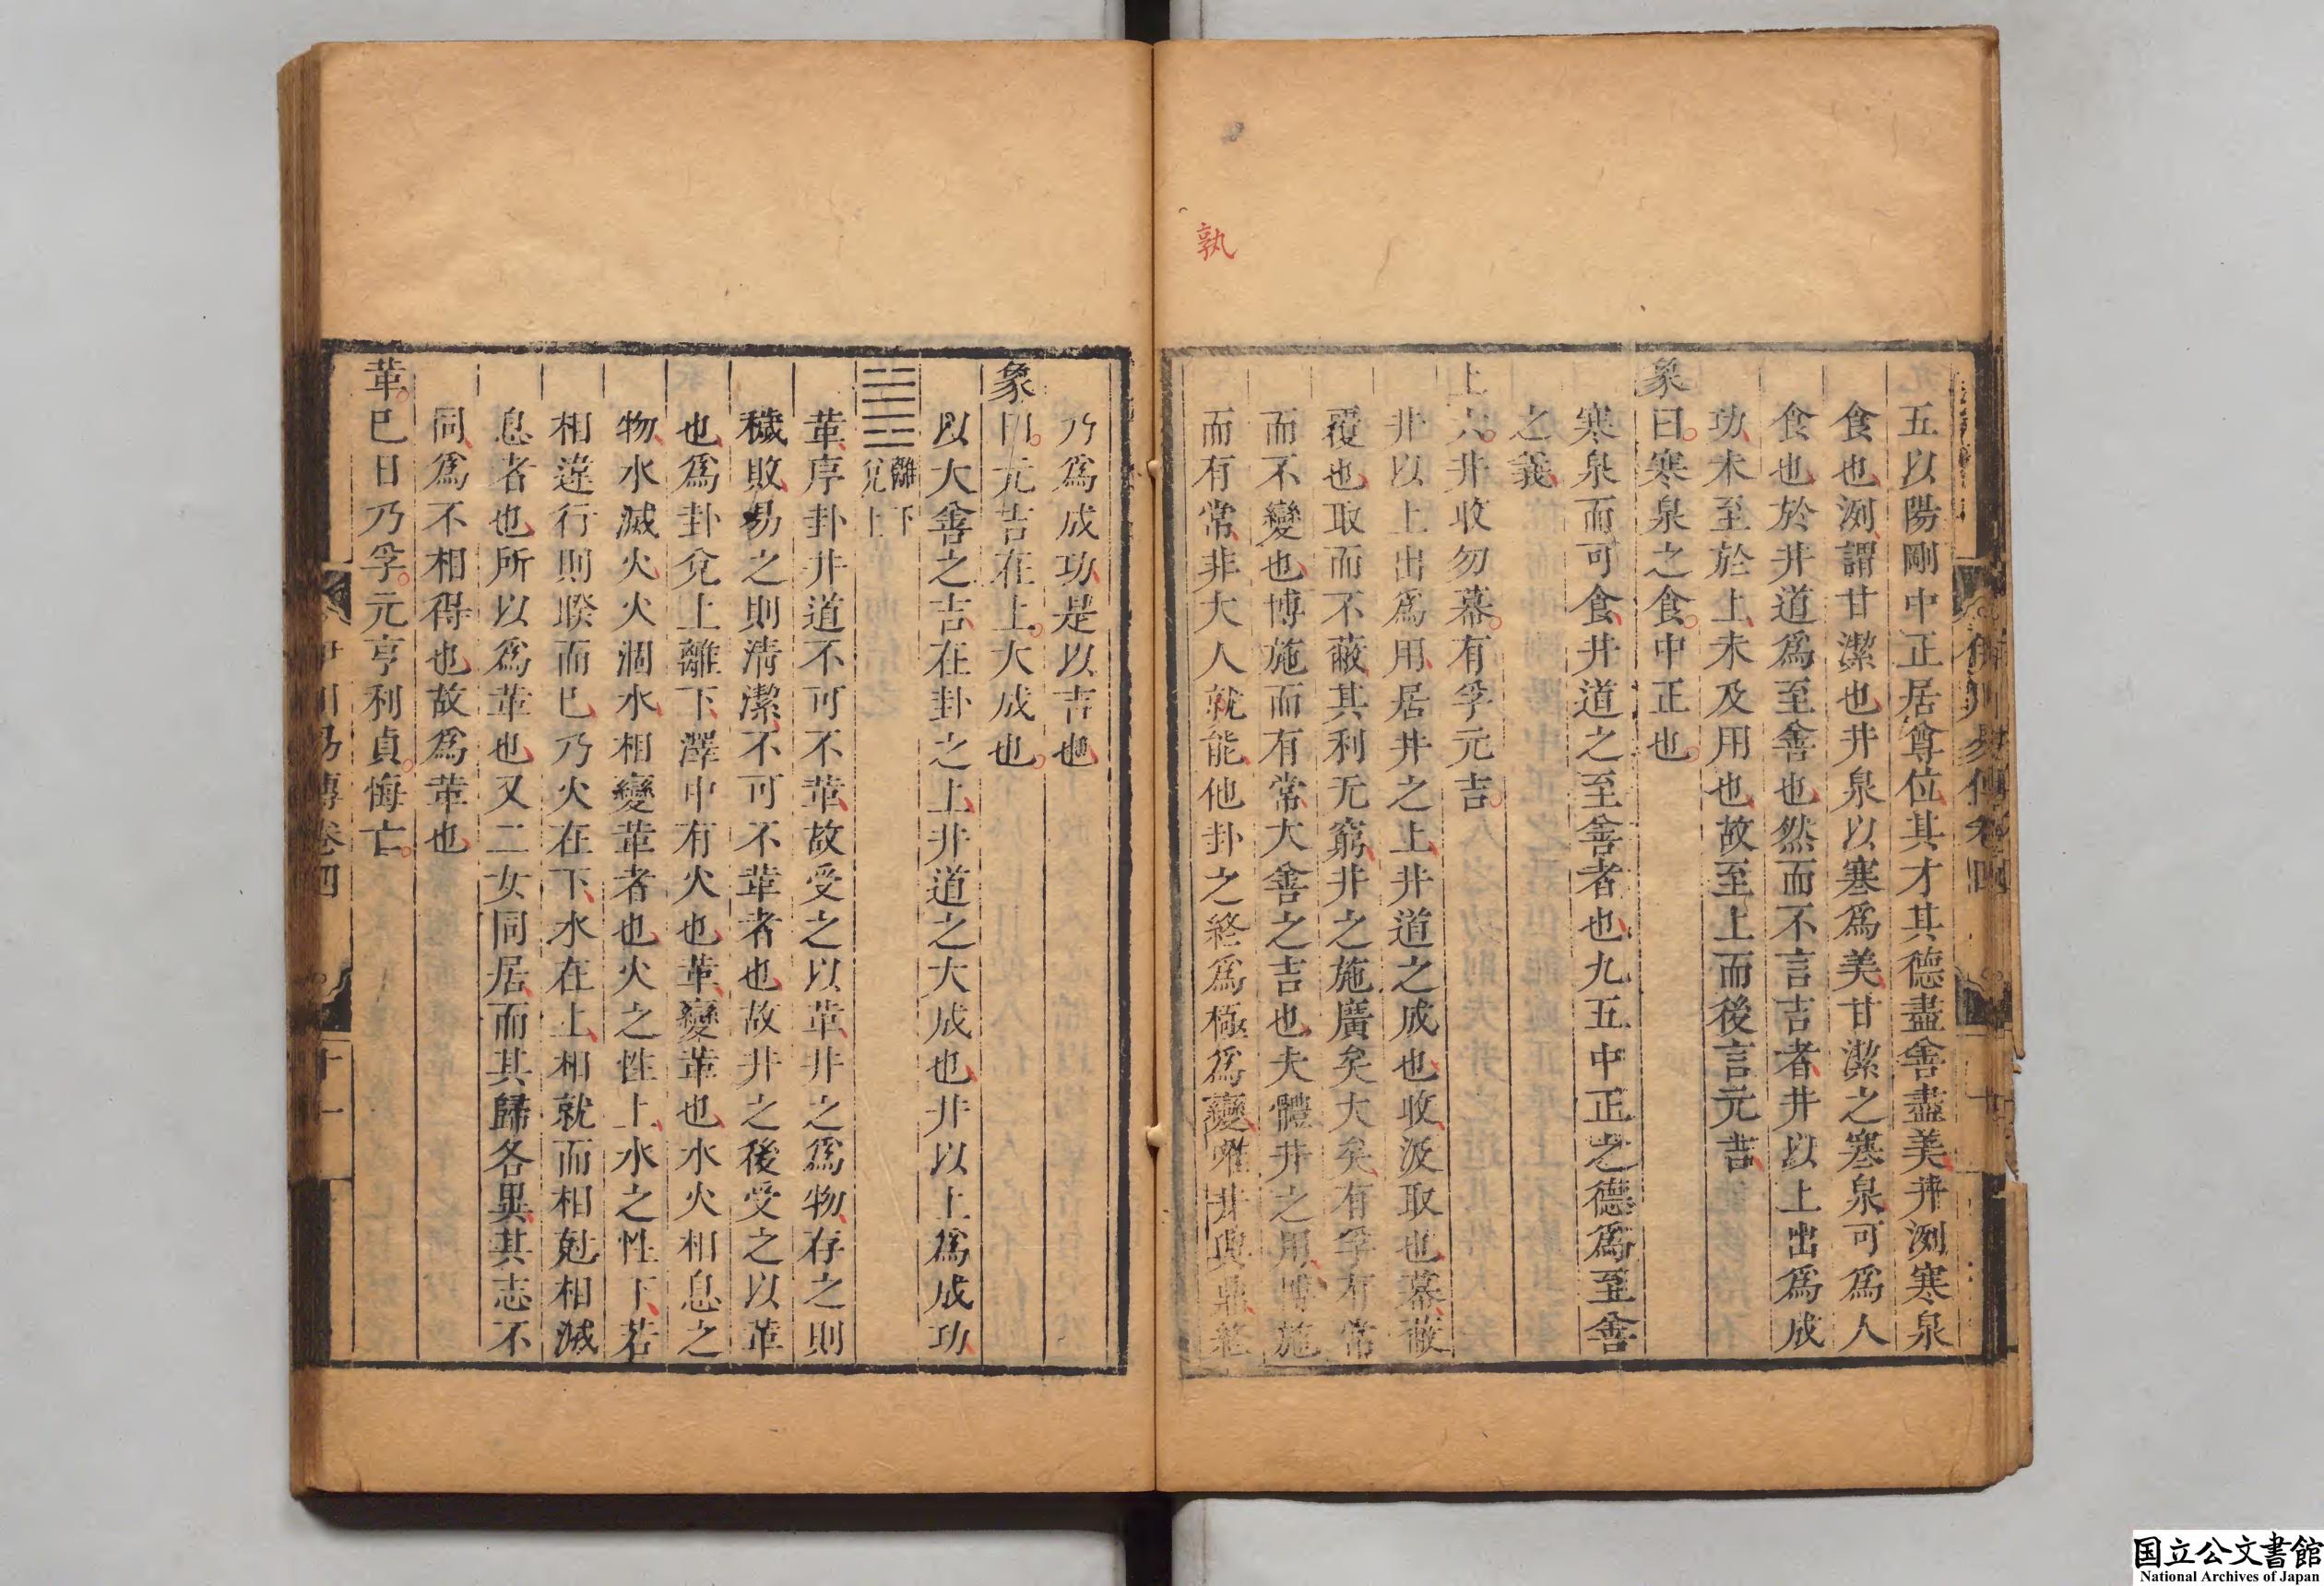 五以陽剛中正居尊位其才其德盡善盡美井洌寒泉
食也洌謂甘潔也井泉以寒爲美甘潔之寒泉可爲人
食也於井道爲至善也然而不言吉者井以上出爲成
功未至於上未及用也故至上而後言元吉
象曰寒泉之食中正也
寒泉而可食井道之至善者也九五中正之德爲至善
之義
上六井收勿幕有孚元吉
井以上出爲用居井之上井道之成也收汲取也幕蔽
覆也取而不蔽其利无窮井之施廣矣大矣有孚有常
而不變也博施而有常大善之吉也夫體井之用博施
而有常非大人孰能他卦之終爲極爲變唯井與鼎終
孰
乃爲成功是以吉也
象曰元吉在上大成也
以大善之吉在卦之上井道之大成也井以上爲成功
離下
兌上
革序卦井道不可不革故受之以革井之爲物存之則
穢敗易之則清潔不可不革者也故井之後受之以革
也爲卦兌上離下澤中有火也革變革也水火相息之
物水滅火火涸水相變革者也火之性上水之性下若
相違行則睽而已乃火在下水在上相就而相尅相滅
息者也所以爲革也又二女同居而其歸各異其志不
同爲不相得也故爲革也
革已日乃孚元亨利貞悔亡
伊川易傳卷四
十一
国立公文書館
National Archives of Japan